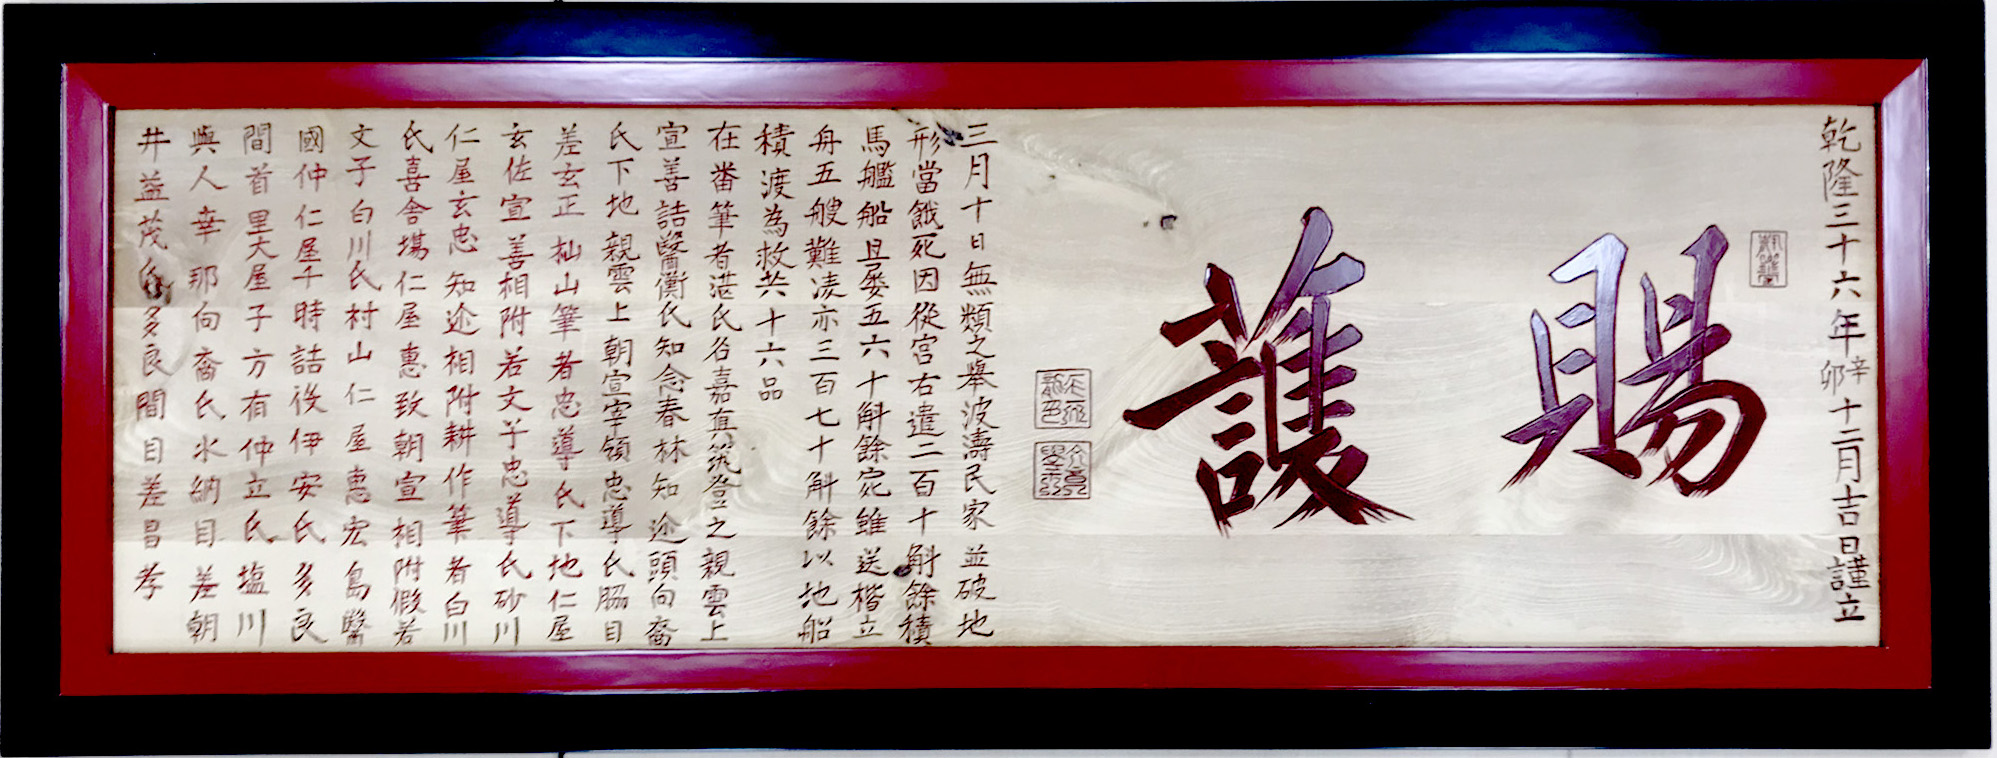 乾隆三十六年辛卯十二月吉日謹立
賜護
三月十日無類之擧波濤民家並破地
形當餓死因従宮右遣二百十斛餘積
馬艦船且屡五六十斛餘宛雖送楷立
舟五艘難凌亦三百七十斛餘以地船
積渡為救共十六品
在番筆者湛氏名嘉真筑登之親雲上
宣善詰醫衡氏知念春林知迩頭向裔
氏下地親雲上朝宣宰領忠導氏脇目
差玄正杣山筆者忠導氏下地仁屋
玄佐宣善相附若文子忠導氏砂川
仁屋玄忠知迩相附耕作筆者白川
氏喜舎場仁屋恵致朝宣相附假若
文子白川氏村山仁屋恵宏島醫
國仲仁屋于時詰役伊安氏多良
間首里大屋子方有仲立氏塩川
與人幸那向裔氏水納目差朝
井益茂氏多良間目差昌孝